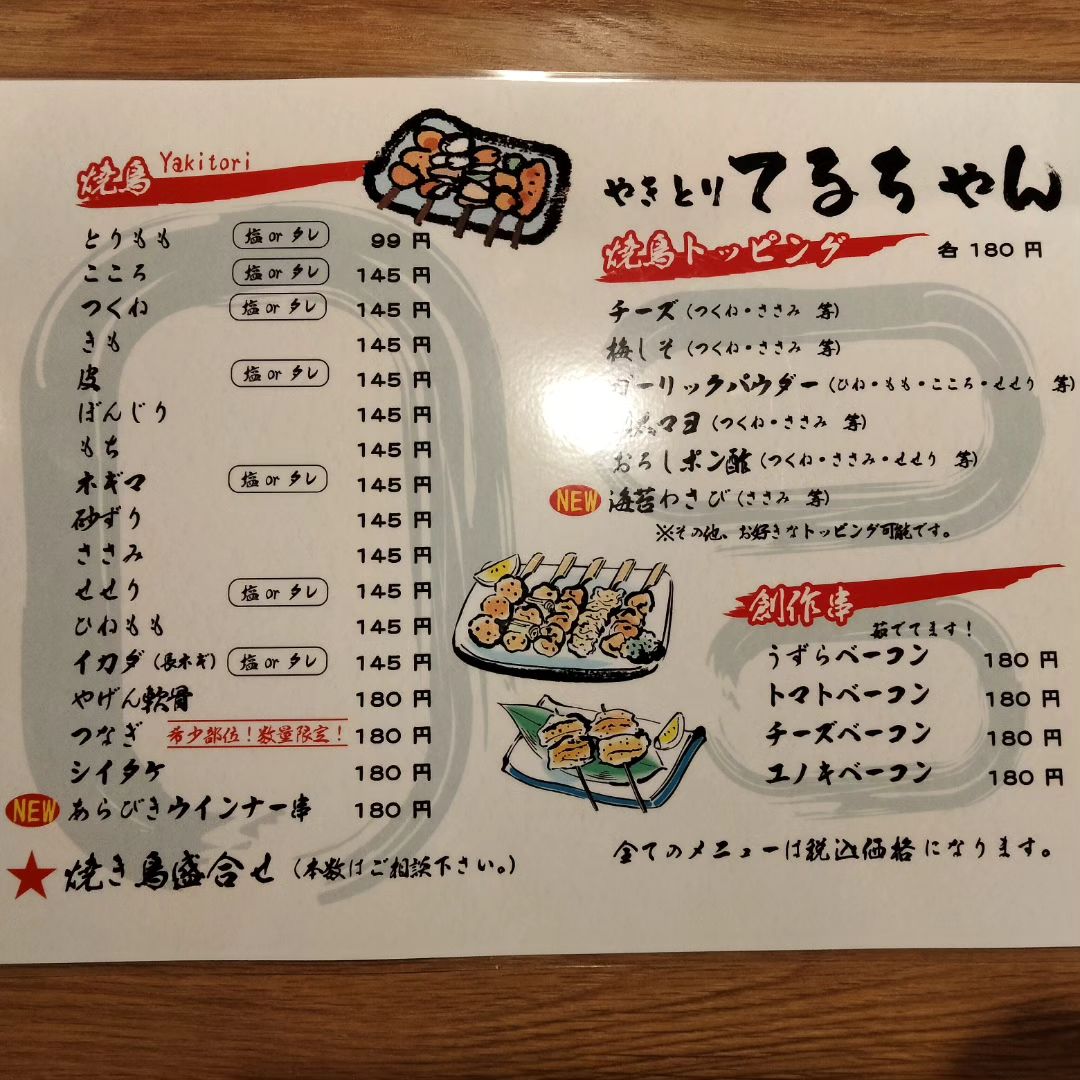 焼鳥 Yakitori
とりもも 塩 or タレ 99 円
こころ 塩 or タレ 145 円
つくね 塩 or タレ 145 円
きも 145 円
皮 塩 or タレ 145 円
ぼんじり 145 円
もち 145 円
ネギマ 塩 or タレ 145 円
砂ずり 145 円
ささみ 145 円
せせり 塩 or タレ 145 円
ひねもも 145 円
イカダ(長ネギ) 塩 or タレ 145 円
やげん軟骨 180 円
つなぎ 希少部位!数量限定! 180 円
シイタケ 180 円
NEW あらびきウインナー串 180 円
★焼き鳥盛合せ(本数はご相談下さい。)
やきとり てるちゃん
焼鳥トッピング 各 180 円
チーズ(つくね・ささみ 等)
梅しそ(つくね・ささみ 等)
ガーリックパウダー(ひね・もも・こころ・せせり 等)
マヨ(つくね・ささみ 等)
おろしポン酢(つくね・ささみ・せせり 等)
NEW 海苔わさび(ささみ 等)
※その他、お好きなトッピング可能です。
創作串
茹でてます!
うずらベーコン 180 円
トマトベーコン 180 円
チーズベーコン 180 円
エノキベーコン 180 円
全てのメニューは税込価格になります。